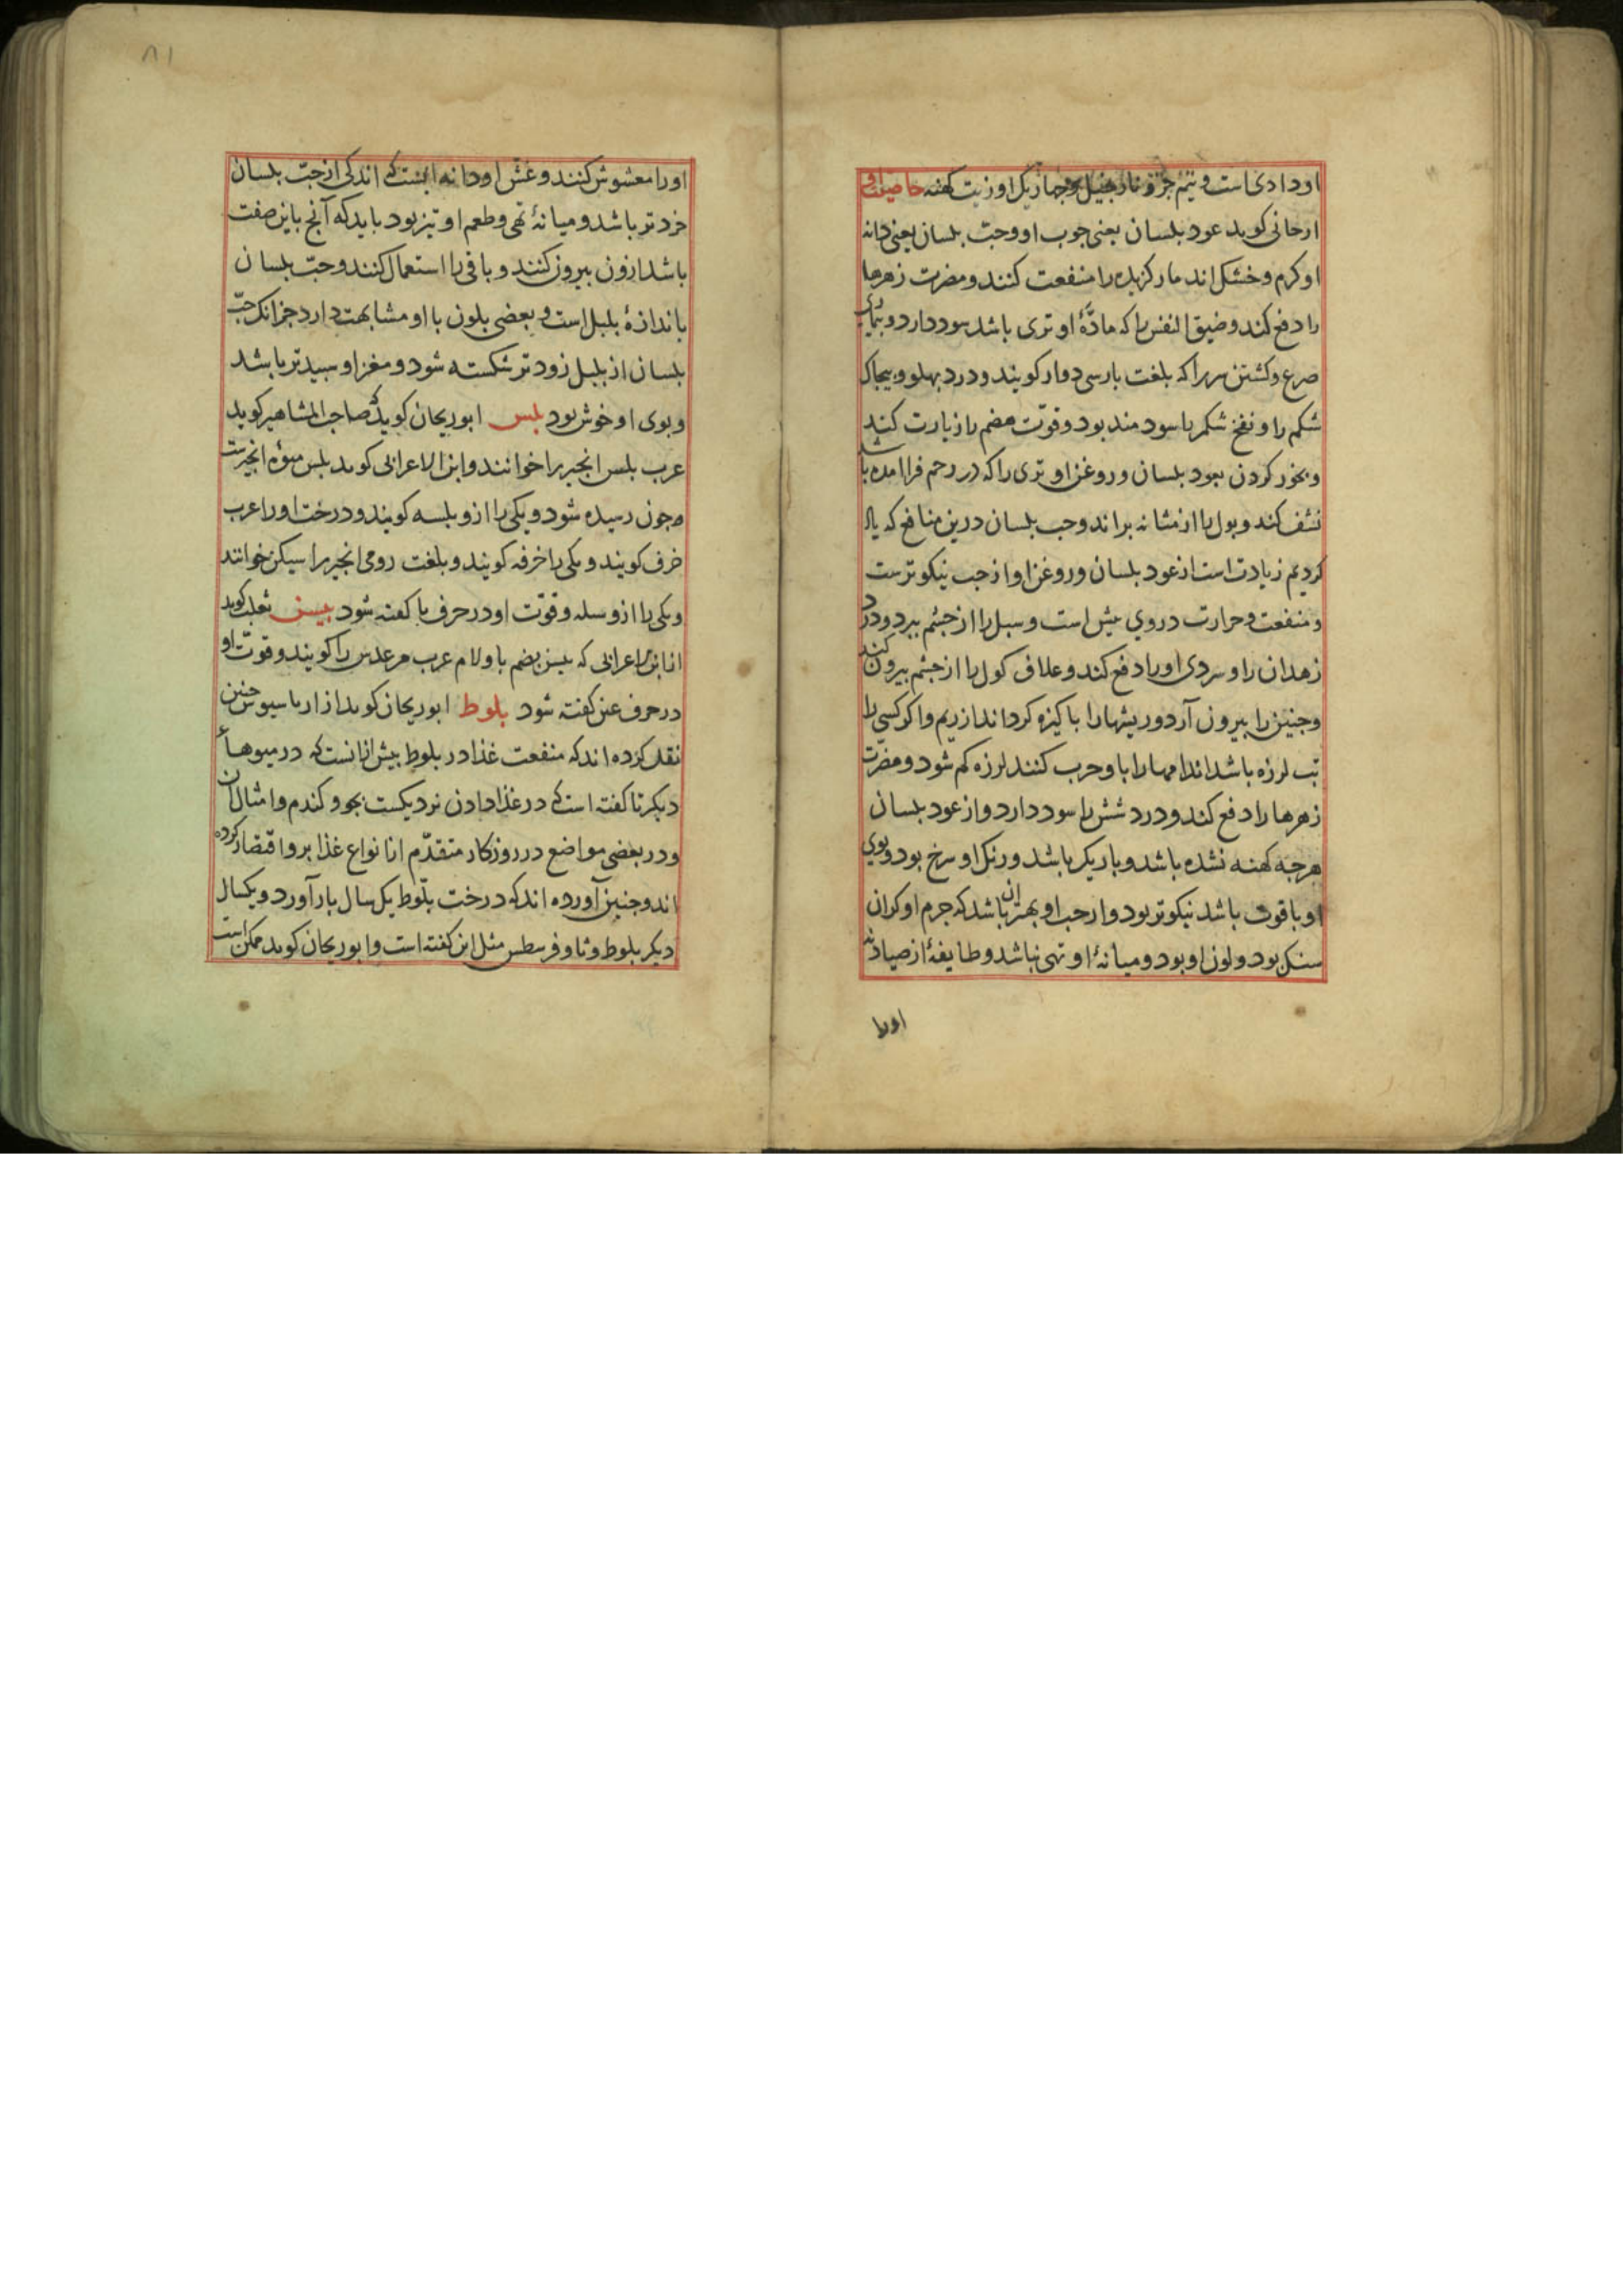 اودادی است و نیم جزو نارجیل و جهاریک او زیت کهنه خاصیت او
ارجانی کوید عود بلسان یعنی جوب او وحب بلسان یعنی دانه
او کرم و خشک اند مار کزیده را منفعت کنند و مضرت زهرها
را دفع کند و ضیق النفس را که مادّهٔ او تری باشد سود دارد و بیماری
صرع و کشتن سر را که بلغت بارسی دوار کویند و درد بهلو و بیجاک
شکم را و نفخ شکم را سودمند بود و قوّت هضم را زیارت کند
و بخور کردن بعود بلسان و روغن او تری را که در رحم فراامده باشد
نشف کند و بول را از مثانه براند وحب بلسان درین منافع که یاد
کردیم زیادت است از عود بلسان و روغن او از حب نیکوترست
و منفعت و حرارت در وی بیش است و سبل را از جشم ببرد و درد
زهدان را و سردی او را دفع کند و علاف کول را از جشم بیرون کند
و جنین را بیرون آرد و ریشها را باکیزه کرداند از ریم و اکر کسی را
تب لرزه باشد اندامها را باو جرب کنند لرزه کم شود و مضرّت
زهرها را دفع کند و درد شش را سود دارد و از عود بلسان
هرجه کهنه نشده باشد و باریک باشد و رنک او سرخ بود و بوی
او با قوت باشد نیکوتر بود و از حب او بهتر ان باشد که جرم او کران
سنک بود و لون او بود و میانهٔ او تهی نباشد و طایفهٔ از صیادنه
اورا
۸۱
اورا معشوش کنند و غش او دانه ایست که اندکی از حبّ بلسان
خردتر باشد و میانهٔ تهی و طعم او تیز بود باید که آنج باین صفت
باشد ازون بیرون کنند و باقی را استعمال کنند وحبّ بلسان
باندازهٔ بلبل است و بعضی بلون با او مشابهت دارد جز انک حبّ
بلسان از بلبل زودتر شکسته شود و مغز او سبیدتر باشد
و بوی او خوش بود بلس ابوریحان کوید که صاحب المشاهیر کوید
عرب بلس انجیر را خوانند و ابن الاعرابی کوید بلس میوهٔ انجیرست
جون رسیده شود و یکی را ازو بلسه کویند و درخت او را عرب
خرف کویند و یکی را خرفه کویند و بلغت رومی انجیر را سیکن خوانند
و یکی را ازو سله و قوّت او در حرف با کفته شود بلسن ثعلب کوید
از ابن الاعرابی که بلسن بضم با و لام عرب مر عدس را کویند و قوّت او
در حرف عین کفته شود بلوط ابوریحان کوید از اریباسیوس جنین
نقل کرده اند که منفعت غذا در بلوط بیش از انست که در میوهاء
دیکر تا کفته است که در غذا دادن نزدیکست بجو و کندم و امثال ان
و در بعضی مواضع در روزکار متقدّم از انواع غذا برو اقتصار کرده
اند و جنین آورده اند که درخت بلّوط یک سال بار آورد و یکسال
دیکر بلوط و ثاوفرسطس مثل این کفته است و ابوریحان کوید ممکن است